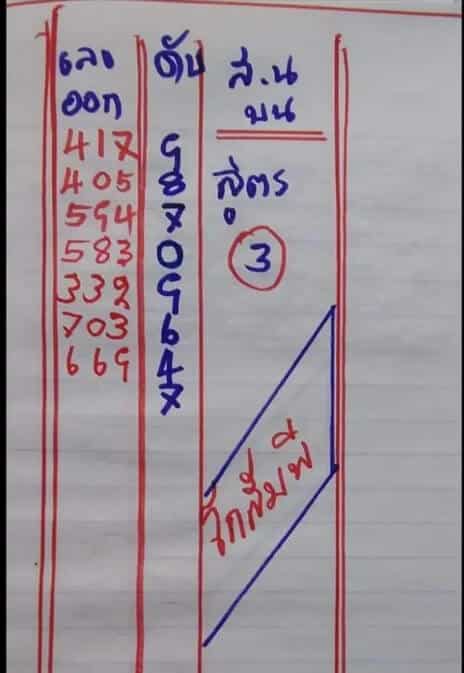 เลข ดับ ส.น
ออก บน
417 9
405 8 สูตร
594 7
583 0 3
332 9
703 6
669 4
7